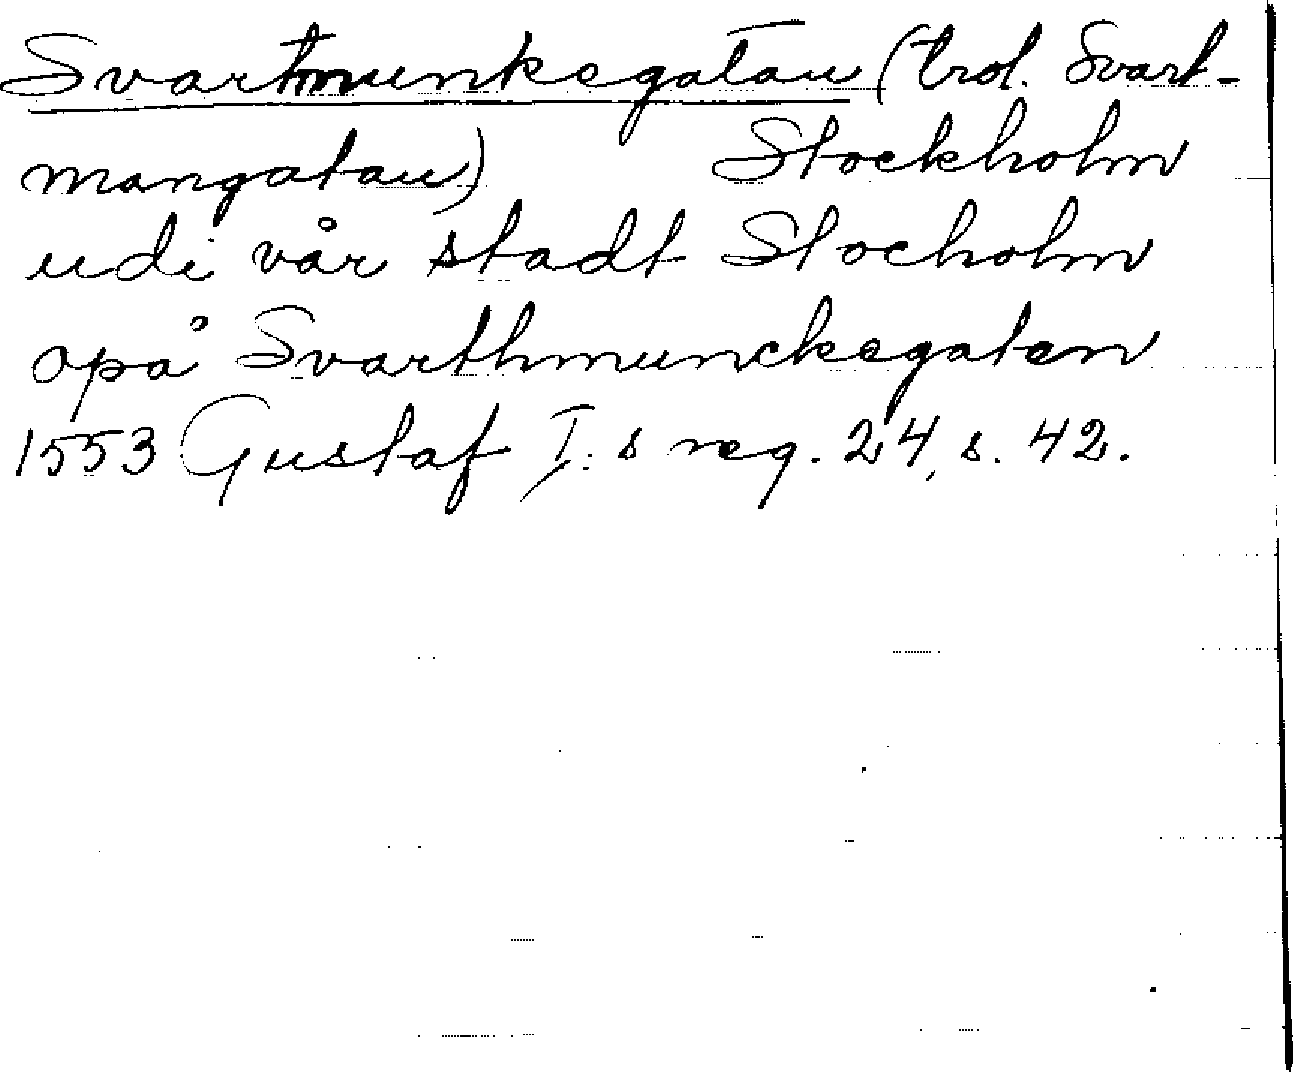 Svartmunkegatan (trol. Svart-
mangatan) Stockholm
udi vår stadt Stocholm
opå Svarthmunckegaten
1553 Gustaf I:s reg. 24, s. 42.